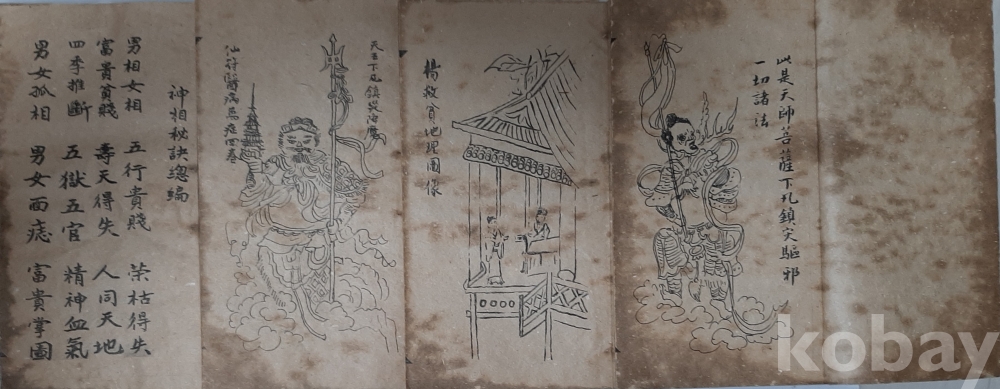 此是天師菩薩下凡鎮灾驅邪
一切諸法
楊救貧地理圖像
天王下凡鎮災治魔
仙符醫病症四卷
神相秘訣總編
男相女相 五行貴賤 榮枯得失
富貴貧賤 壽夭得失 人同天地
四季推斷 五獄五官 精神血氣
男女孤相 男女面痣 富貴掌圖
kobay